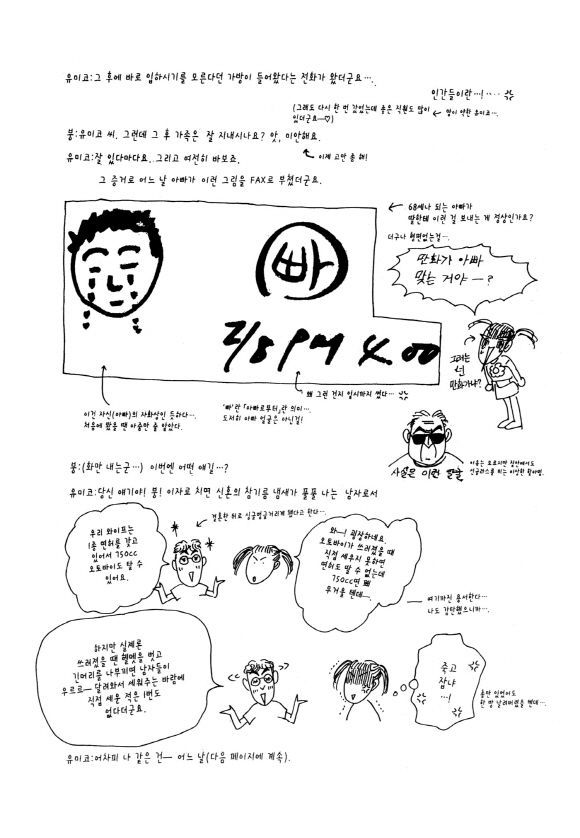 유미코:그 후에 바로 입하시기를 모른다던 가방이 들어왔다는 전화가 왔더군요….
인간들이란…!….
(그래도 다시 한 번 갔었는데 좋은 직원도 많이
있더군요—♡)
← 맘이 약한 유미코….
뿡:유미코 씨. 그런데 그 후 가족은 잘 지내시나요? 앗, 미안해요.
유미코:잘 있다마다요..그리고 여전히 바보죠.
이제 고만 좀 해!
그 증거로 어느 날 아빠가 이런 그림을 FAX로 부쳤더군요.
← 68세나 되는 아빠가
딸한테 이런 걸 보내는 게 정상인가요?
더구나 형편없는걸….
만화가 아빠
맞는 거야 —?
빠
2/8 PM 4.00
그러는
넌
만화가냐?
이건 자신(아빠)의 자화상인 듯하다….
처음에 봤을 땐 아줌만 줄 알았다.
왜 그런 건지 입시까지 썼다…
'빠'란 「아빠로부터」란 의미….
도저히 아빠 얼굴은 아닌걸!
사실은 이런 얼굴
이유는 모르지만 집안에서도
선글라스를 끼는 이상한 할아범.
뿡:(화만 내는군…) 이번엔 어떤 얘길…?
유미코:당신 얘기야! 뿡! 이자로 치면 신혼의 참기름 냄새가 풀풀 나는 남자로서
← 결혼한 뒤로 싱글벙글거리게 됐다고 한다….
우리 와이프는
1종 면허를 갖고
있어서 750cc
오토바이도 탈 수
있어요.
와—! 굉장하네요.
오토바이가 쓰러졌을 때
직접 세우지 못하면
면허도 딸 수 없는데
750cc면 꽤
무거울 텐데….
여기까진 용서한다….
나도 감탄했으니까….
하지만 실제론
쓰러졌을 땐 헬멧을 벗고
긴머리를 나부끼면 남자들이
우르르— 달려와서 세워주는 바람에
직접 세운 적은 1번도
없다더군요.
죽고
잡냐
…!
출판 일면이도
한 방 날려버렸을 텐데….
유미코:어차피 나 같은 건— 어느 날(다음 페이지에 계속).